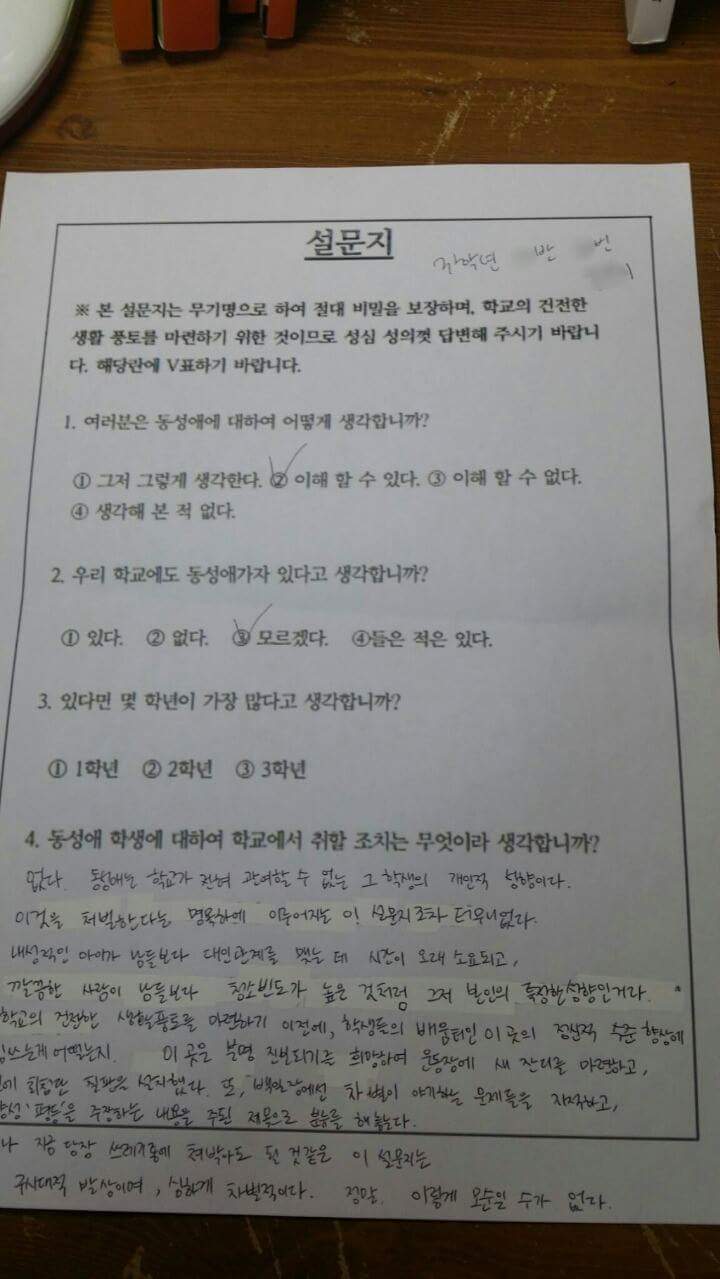 설문지
학년 반 번
※ 본 설문지는 무기명으로 하여 절대 비밀을 보장하며, 학교의 건전한
생활 풍토를 마련하기 위한 것이므로 성심 성의껏 답변해 주시기 바랍니
다. 해당란에 V표하기 바랍니다.
1. 여러분은 동성애에 대하여 어떻게 생각합니까?
① 그저 그렇게 생각한다. ② 이해 할 수 있다. ③ 이해 할 수 없다.
④ 생각해 본 적 없다.
2. 우리 학교에도 동성애가자 있다고 생각합니까?
① 있다. ② 없다. ③ 모르겠다. ④들은 적은 있다.
3. 있다면 몇 학년이 가장 많다고 생각합니까?
① 1학년 ② 2학년 ③ 3학년
4. 동성애 학생에 대하여 학교에서 취할 조치는 무엇이라 생각합니까?
없다. 동성애는 학교가 전혀 관여할 수 없는 그 학생의 개인적 성향이다.
이것을 처벌한다는 명목하에 이루어지는 이 설문지조차 터무니없다.
내성적인 아이가 남들보다 대인관계를 맺는 데 시간이 오래 소요되고,
깔끔한 사람이 남들보다 청소빈도가 높은 것처럼 그저 본인의 특정한 성향인거라.
학교의 건전한 생활풍토를 마련하기 이전에, 학생들의 배움터인 이 곳의 정신적 수준 향상에
힘쓰는게 어떨는지. 이 곳은 분명 진보되기를 희망하여 운동장에 새 잔디를 마련하고,
에 회장판 칠판을 설치했다. 또, 백일장에선 차별이 야기하는 문제들을 지적하고,
양성'평등'을 주장하는 내용을 주된 제목으로 분류를 해놓는다.
나 지금 당장 쓰레기통에 쳐박아도 될 것같은 이 설문지는
구시대적 발상이며, 심하게 차별적이다. 정말. 이렇게 모순일 수가 없다.